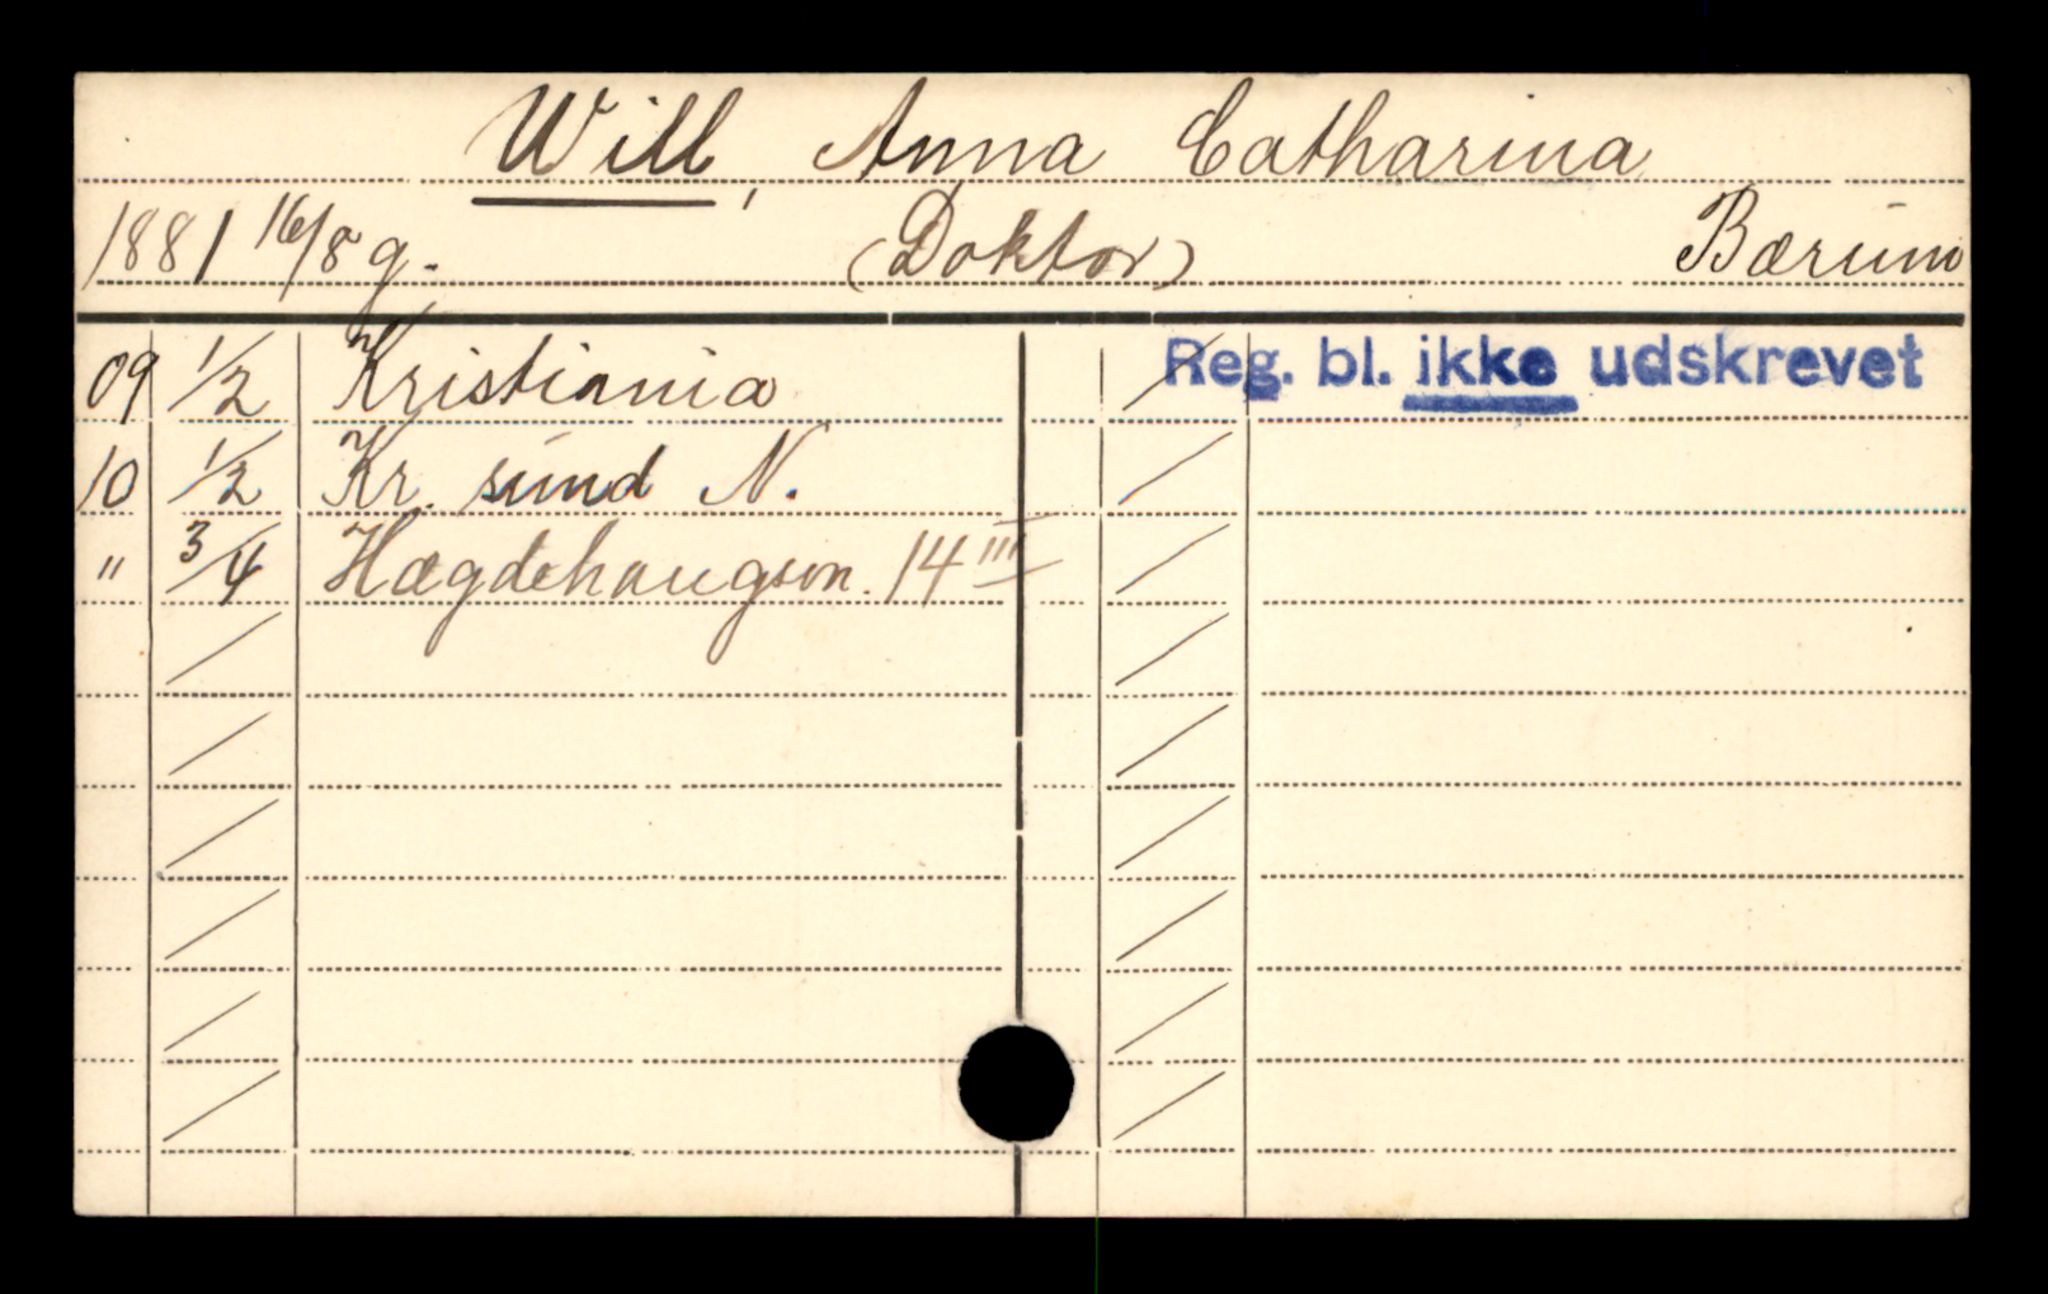 Will, Anna Catharina
1881 16/8 g. (Doktor) Bærum
09 1/2 Kristiania
10 1/2 Kr. sund N.
" 3/4 Hægdehaugsvn. 14 III
Reg. bl. ikke udskrevet